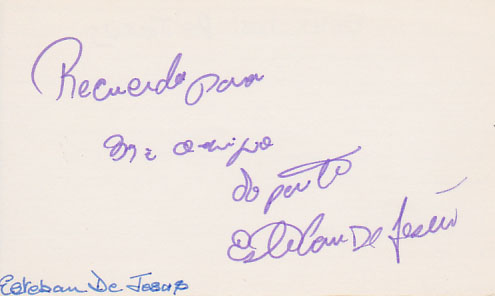 Recuerdo para
mi amigo
de parte
Esteban De Jesús
Esteban De Jesus